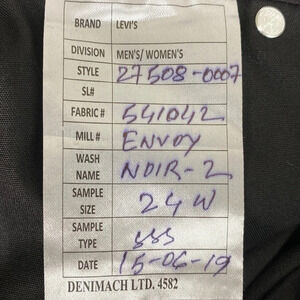 BRAND LEVI'S
DIVISION MEN'S/ WOMEN'S
STYLE 27508-0007
SL#
FABRIC # 541042
MILL # ENVOY
WASH NAME NOIR-2
SAMPLE SIZE 24W
SAMPLE TYPE SSS
DATE 15-06-19
DENIMACH LTD. 4582